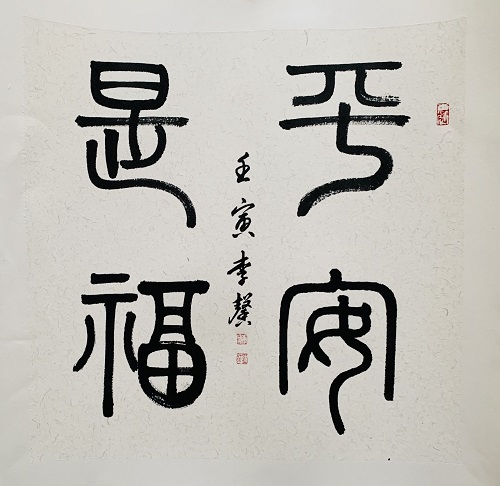 平安
是福
壬寅李馨